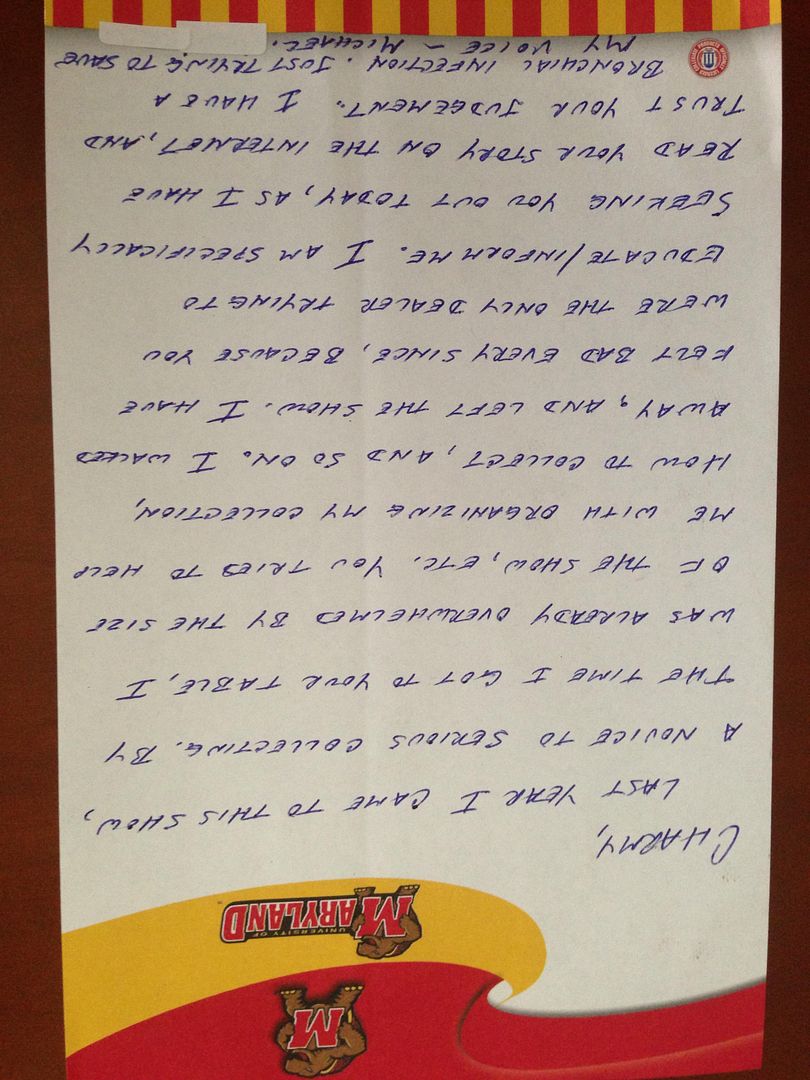 M
UNIVERSITY OF
MARYLAND
CHARMY,
LAST YEAR I CAME TO THIS SHOW,
A NOVICE TO SERIOUS COLLECTING. BY
THE TIME I GOT TO YOUR TABLE, I
WAS ALREADY OVERWHELMED BY THE SIZE
OF THE SHOW, ETC. YOU TRIED TO HELP
ME WITH ORGANIZING MY COLLECTION,
HOW TO COLLECT, AND SO ON. I WALKED
AWAY, AND LEFT THE SHOW. I HAVE
FELT BAD EVERY SINCE, BECAUSE YOU
WERE THE ONLY DEALER TRYING TO
EDUCATE/INFORM ME. I AM SPECIFICALLY
SEEKING YOU OUT TODAY, AS I HAVE
READ YOUR STORY ON THE INTERNET, AND
TRUST YOUR JUDGEMENT. I HAVE A
BRONCHIAL INFECTION. JUST TRYING TO SAVE
MY VOICE ~ MICHAEL.